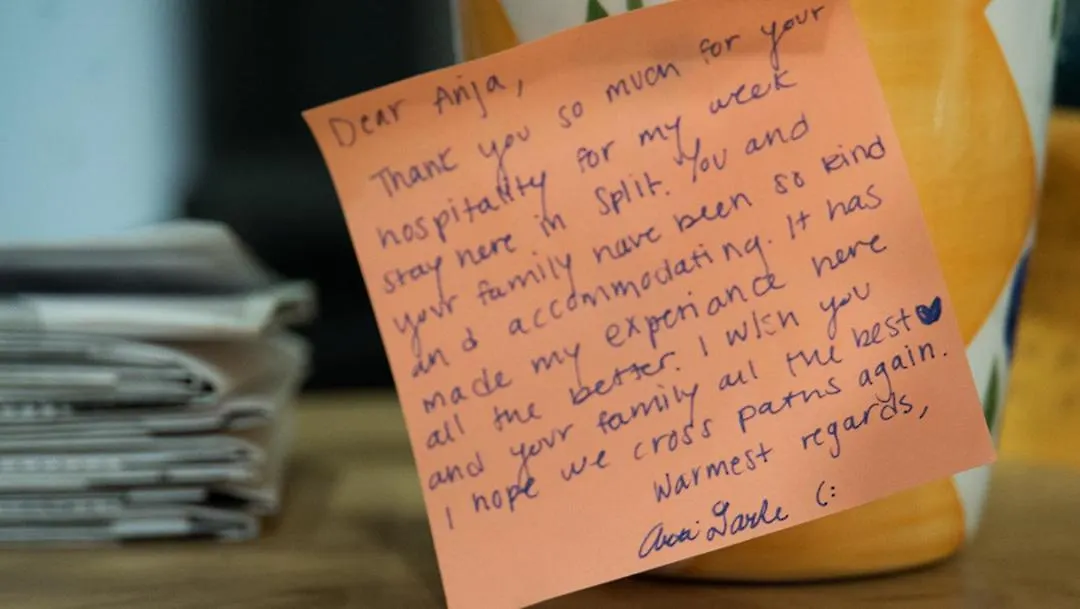 Dear Anja,
Thank you so much for your
hospitality for my week
stay here in Split. You and
your family have been so kind
and accommodating. It has
made my experiance here
all the better. I wish you
and your family all the best♥
I hope we cross paths again.
Warmest regards,
(: